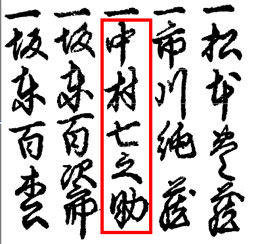 一松本岩蔵
一市川純蔵
一中村七之助
一坂東百次郎
一坂東百松